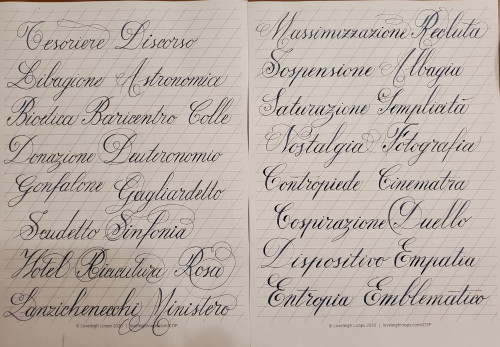 Tesoriere Discorso
Libagione Astronomia
Bioetica Baricentro Colle
Donazione Deuteronomio
Gonfalone Gagliardetto
Scudetto Sinfonia
Hotel Riacutura Rosa
Lanzichenecchi Ministero
© Loveleigh Loops 2020 |
Massimizzazione Recluta
Sospensione Albagia
Saturazione Semplicità
Nostalgia Fotografia
Contropiede Cinematra
Cospirazione Duello
Dispositivo Empatia
Entropia Emblematico
© Loveleigh Loops 2020 |